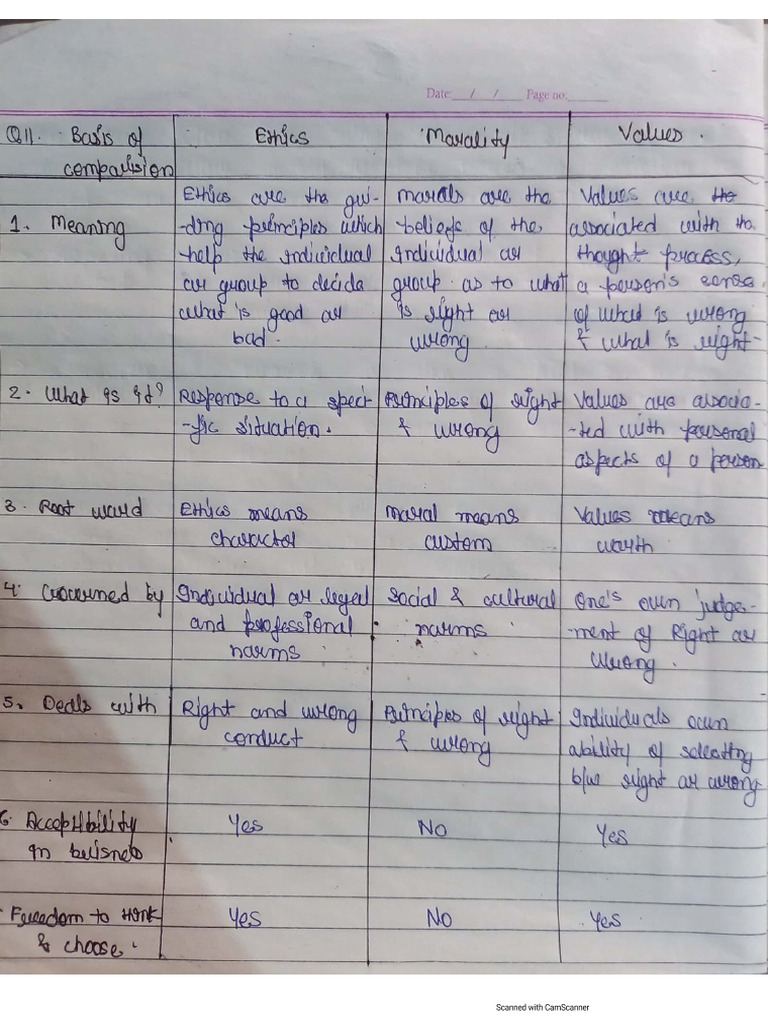 Date: / / Page no.
Q11. Basis of comparision | Ethics | Morality | Values.
1. Meaning | Ethics are the gui-ding principles which help the individual or group to decide what is good or bad. | Morals are the beliefs of the individual or group as to what is right or wrong | Values are the associated with the thought process, a person's sense of what is wrong & what is right-
2. What is it? | Response to a speci-fic situation. | Principles of right & wrong | Values are associa-ted with personal aspects of a person
3. Root word | Ethics means character | Moral means custom | Values means worth
4. Concerned by | Individual or legal and professional norms | Social & cultural norms | One's own judge-ment of Right or Wrong.
5. Deals with | Right and wrong conduct | Principles of right & wrong | Individuals own ability of selecting b/w right or wrong
6. Acceptibility in | Yes | No | Yes
Freedom to & choose. | Yes | No | Yes
Scanned with CamScanner